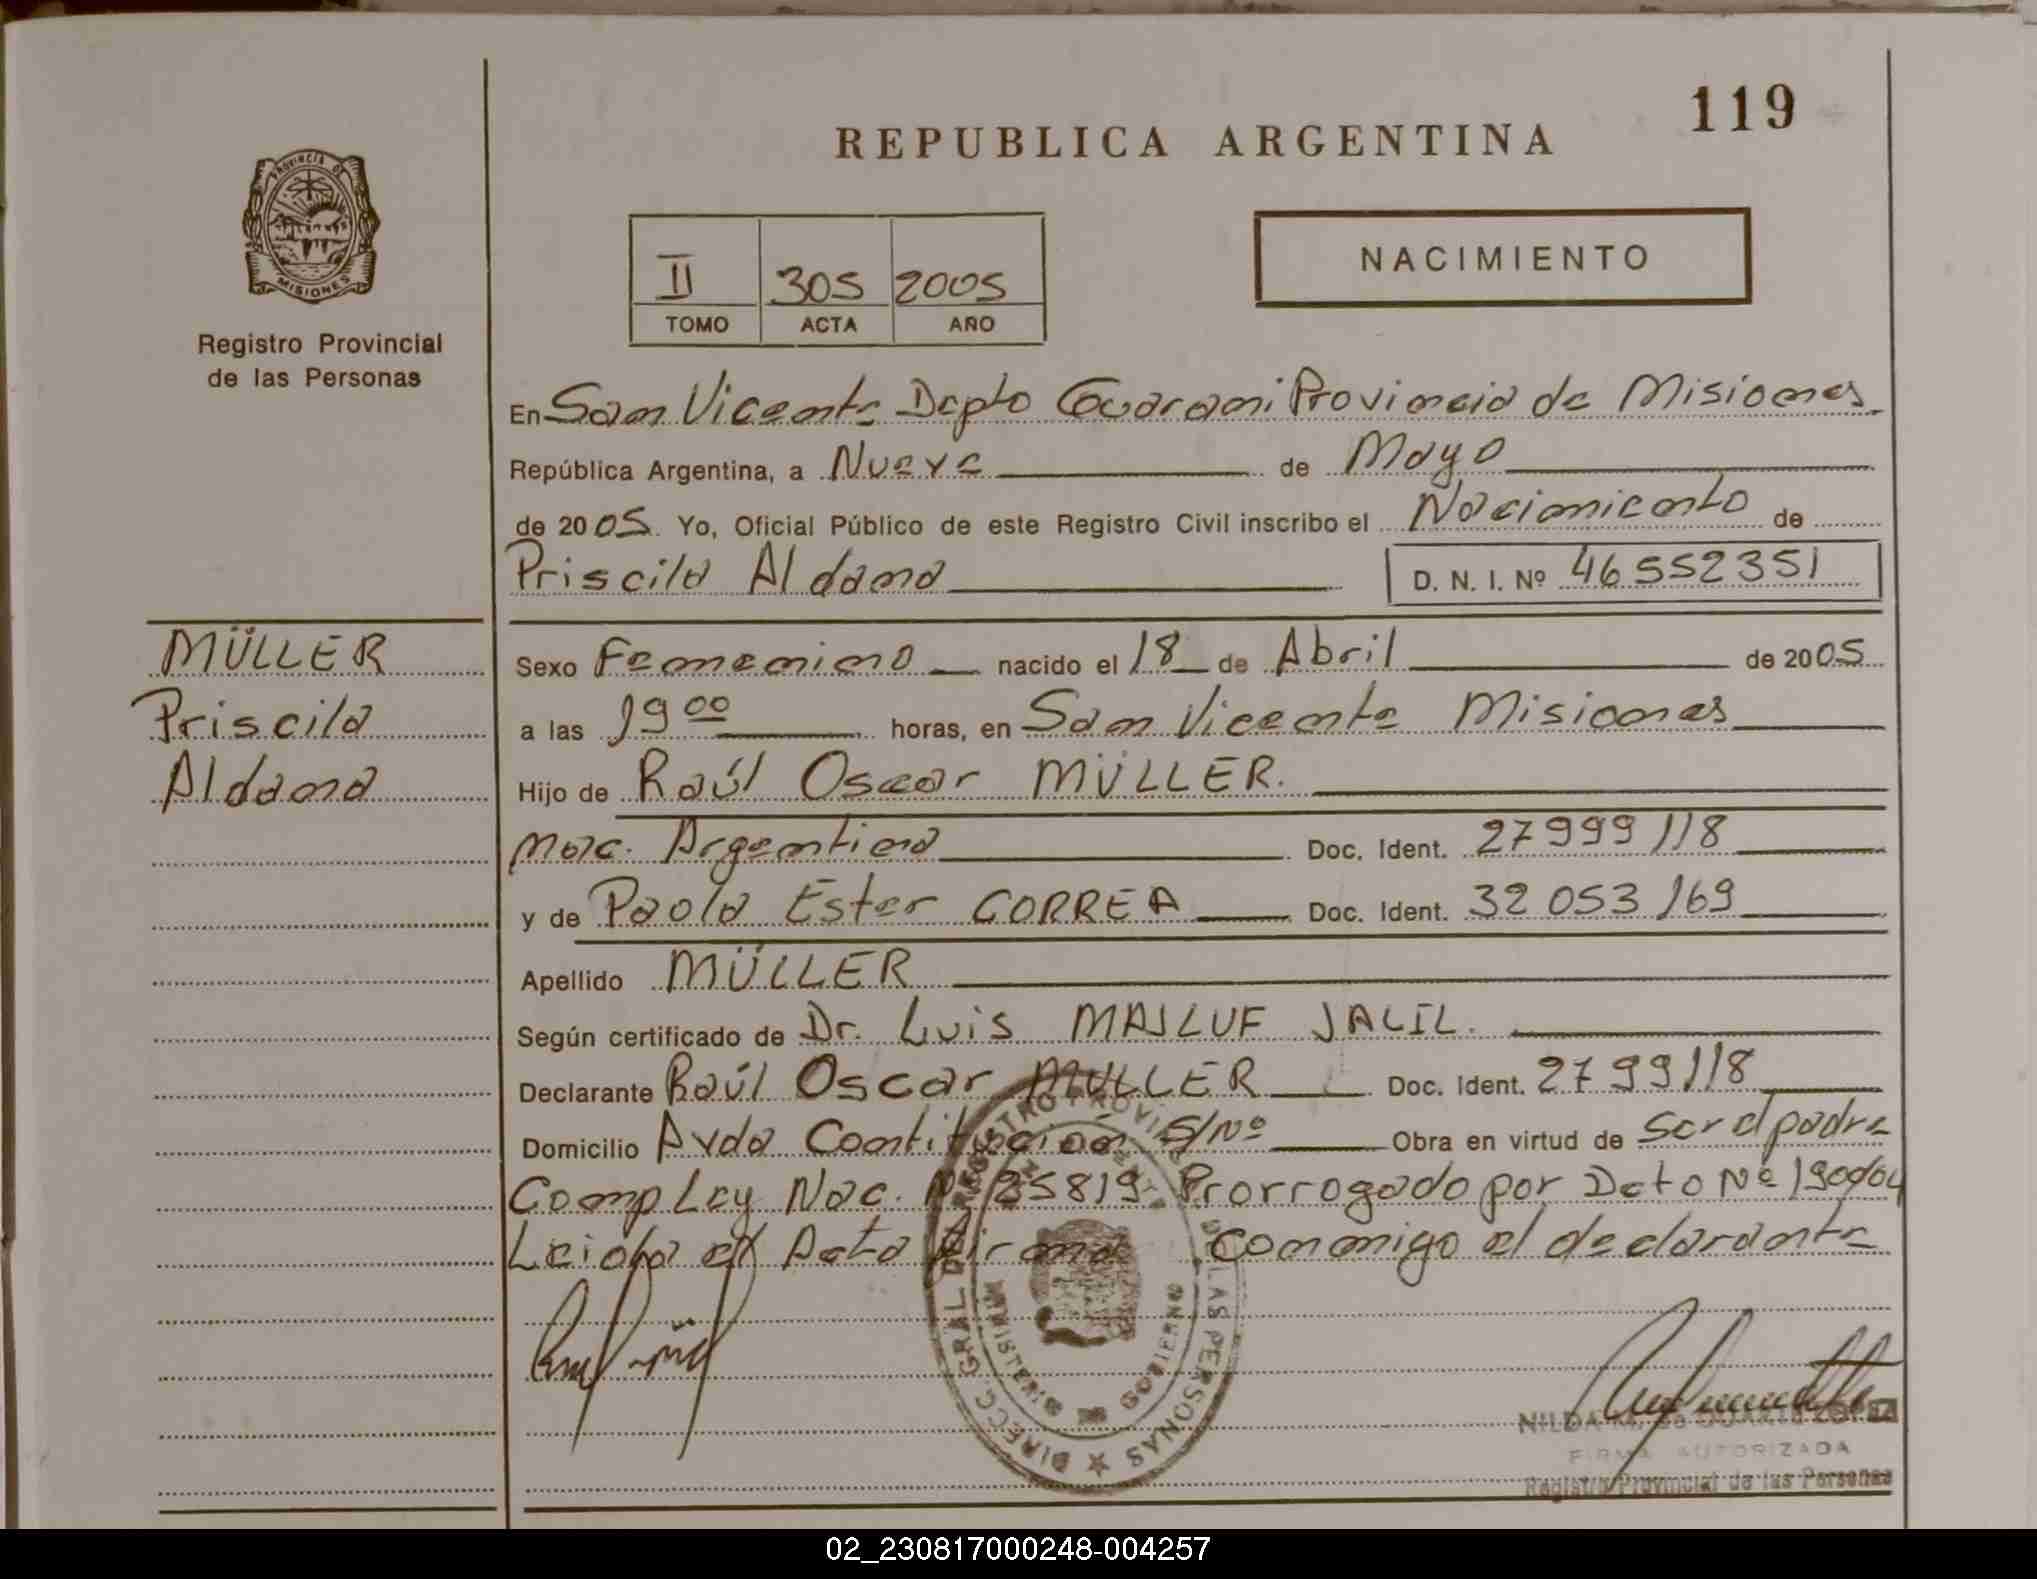 119
REPUBLICA ARGENTINA
PROVINCIA DE
MISIONES
Registro Provincial
de las Personas
NACIMIENTO
II 305 2005
TOMO ACTA AÑO
En San Vicente Depto Guarani Provincia de Misiones
República Argentina, a Nueve de Mayo
de 2005. Yo, Oficial Público de este Registro Civil inscribo el Nacimiento de
Priscila Aldana D. N. I. Nº 46552351
MÜLLER
Priscila
Aldana
Sexo Femenino nacido el 18 de Abril de 2005
a las 19 00 horas, en San Vicente Misiones
Hijo de Raúl Oscar MÜLLER.
nac. Argentina Doc. Ident. 27999118
y de Paola Ester CORREA Doc. Ident. 32 053 169
Apellido MÜLLER
Según certificado de Dr. Luis MAJLUF JALIL.
Declarante Raúl Oscar MULLER Doc. Ident. 2799118
Domicilio Avda Contitución S/Nº Obra en virtud de ser el padre
Comp Ley Nac. Nº 25819 Prorrogado por Dcto Nº 190/04
Leida el Acta Firma conmigo el declarante
DIRECC. GRAL DEL REGISTRO PROVINCIAL DE LAS PERSONAS
MINISTERIO DE GOBIERNO
NILDA
FIRMA AUTORIZADA
Registro Provincial de las Personas
02_230817000248-004257